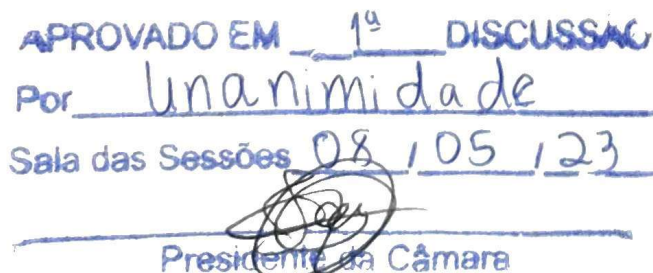 APROVADO EM 1ª DISCUSSÃO
Por Unanimidade
Sala das Sessões 08 / 05 / 23
Presidente da Câmara